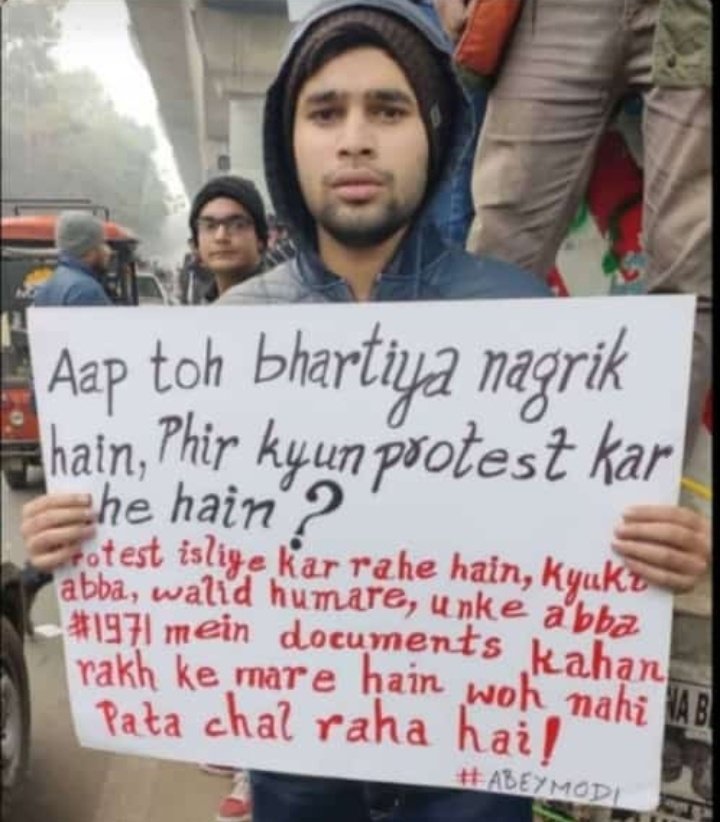 Aap toh bhartiya nagrik
hain, Phir kyun protest kar
he hain ?
rotest isliye kar rahe hain, kyuki
abba, walid humare, unke abba
#1971 mein documents kahan
rakh ke mare hain woh nahi
Pata chal raha hai!
#ABEYMODI